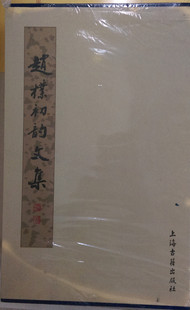 趙樸初韵文集
上海古籍出版社